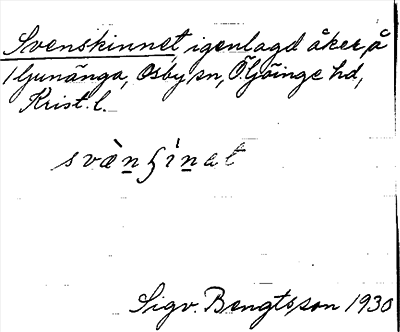 Svenskinnet igenlagd åker, å
1 Ljunänga, Osby sn, Ö. Göinge hd,
Krist. l.
svæ̀nʃìnat
Sigv. Bengtsson 1930